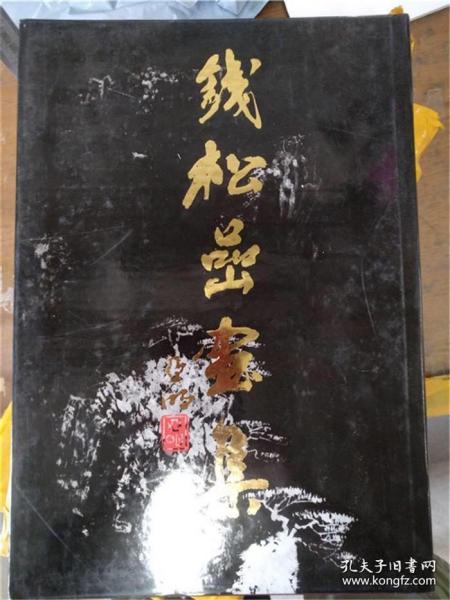 錢松嵒畫集
亞明
孔夫子旧书网
www.kongfz.com